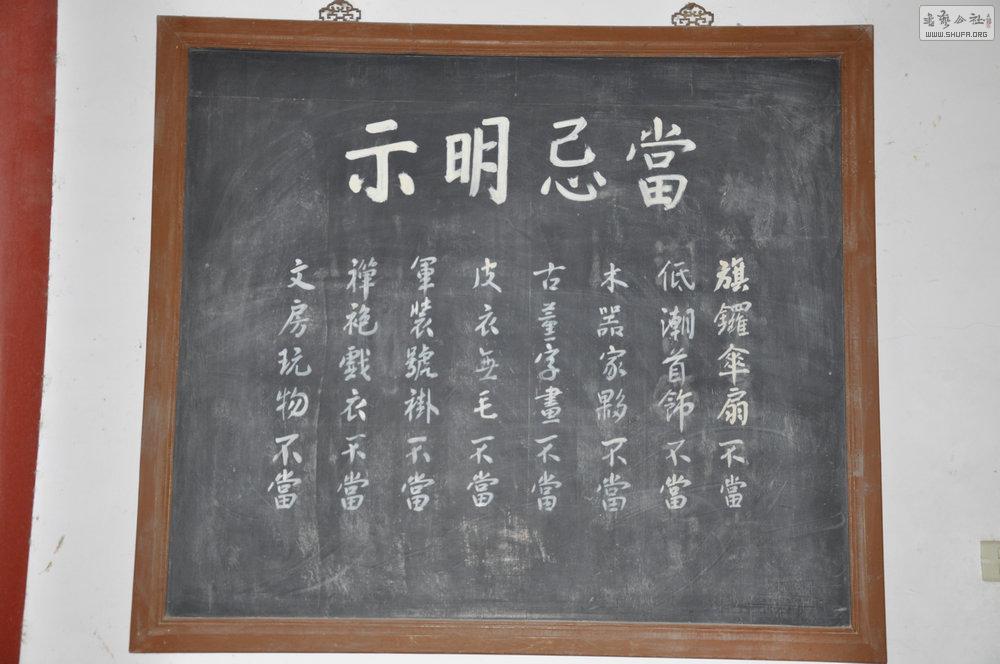 當忌明示
旗鑼傘扇不當
低潮首飾不當
木器家夥不當
古董字畫不當
皮衣無毛不當
軍裝號褂不當
禅袍戲衣不當
文房玩物不當
書藝公社
WWW.SHUFA.ORG